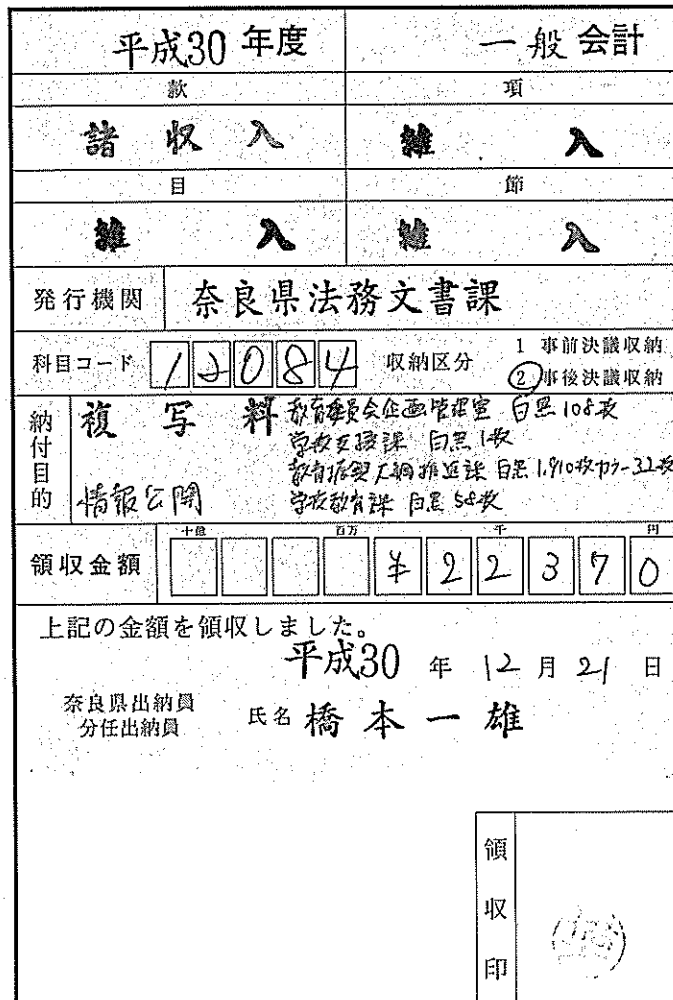 平成30 年度 一般 会計
款 項
諸収入 雑入
目 節
雑入 雑入
発行機関 奈良県法務文書課
科目コード 12084 収納区分 1 事前決議収納
2 事後決議収納
納付目的 複写料 教育委員会企画管理室 白黒108枚
学校支援課 白黒1枚
教育振興大綱推進課 白黒1,910枚カラー32枚
情報公開 学校教育課 白黒58枚
十億 百万 千 円
領収金額 ¥22370
上記の金額を領収しました。
平成30 年 12 月 21 日
奈良県出納員
分任出納員 氏名 橋本一雄
領収印